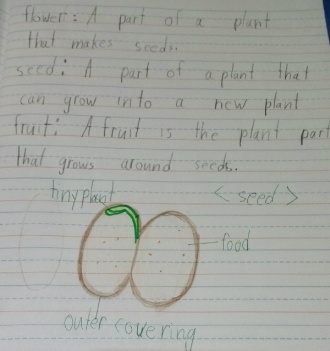 flower: A part of a plant
that makes seeds.
seed: A part of a plant that
can grow into a new plant
fruit: A fruit is the plant part
that grows around seeds..
tiny plant
< seed >
food
outer covering